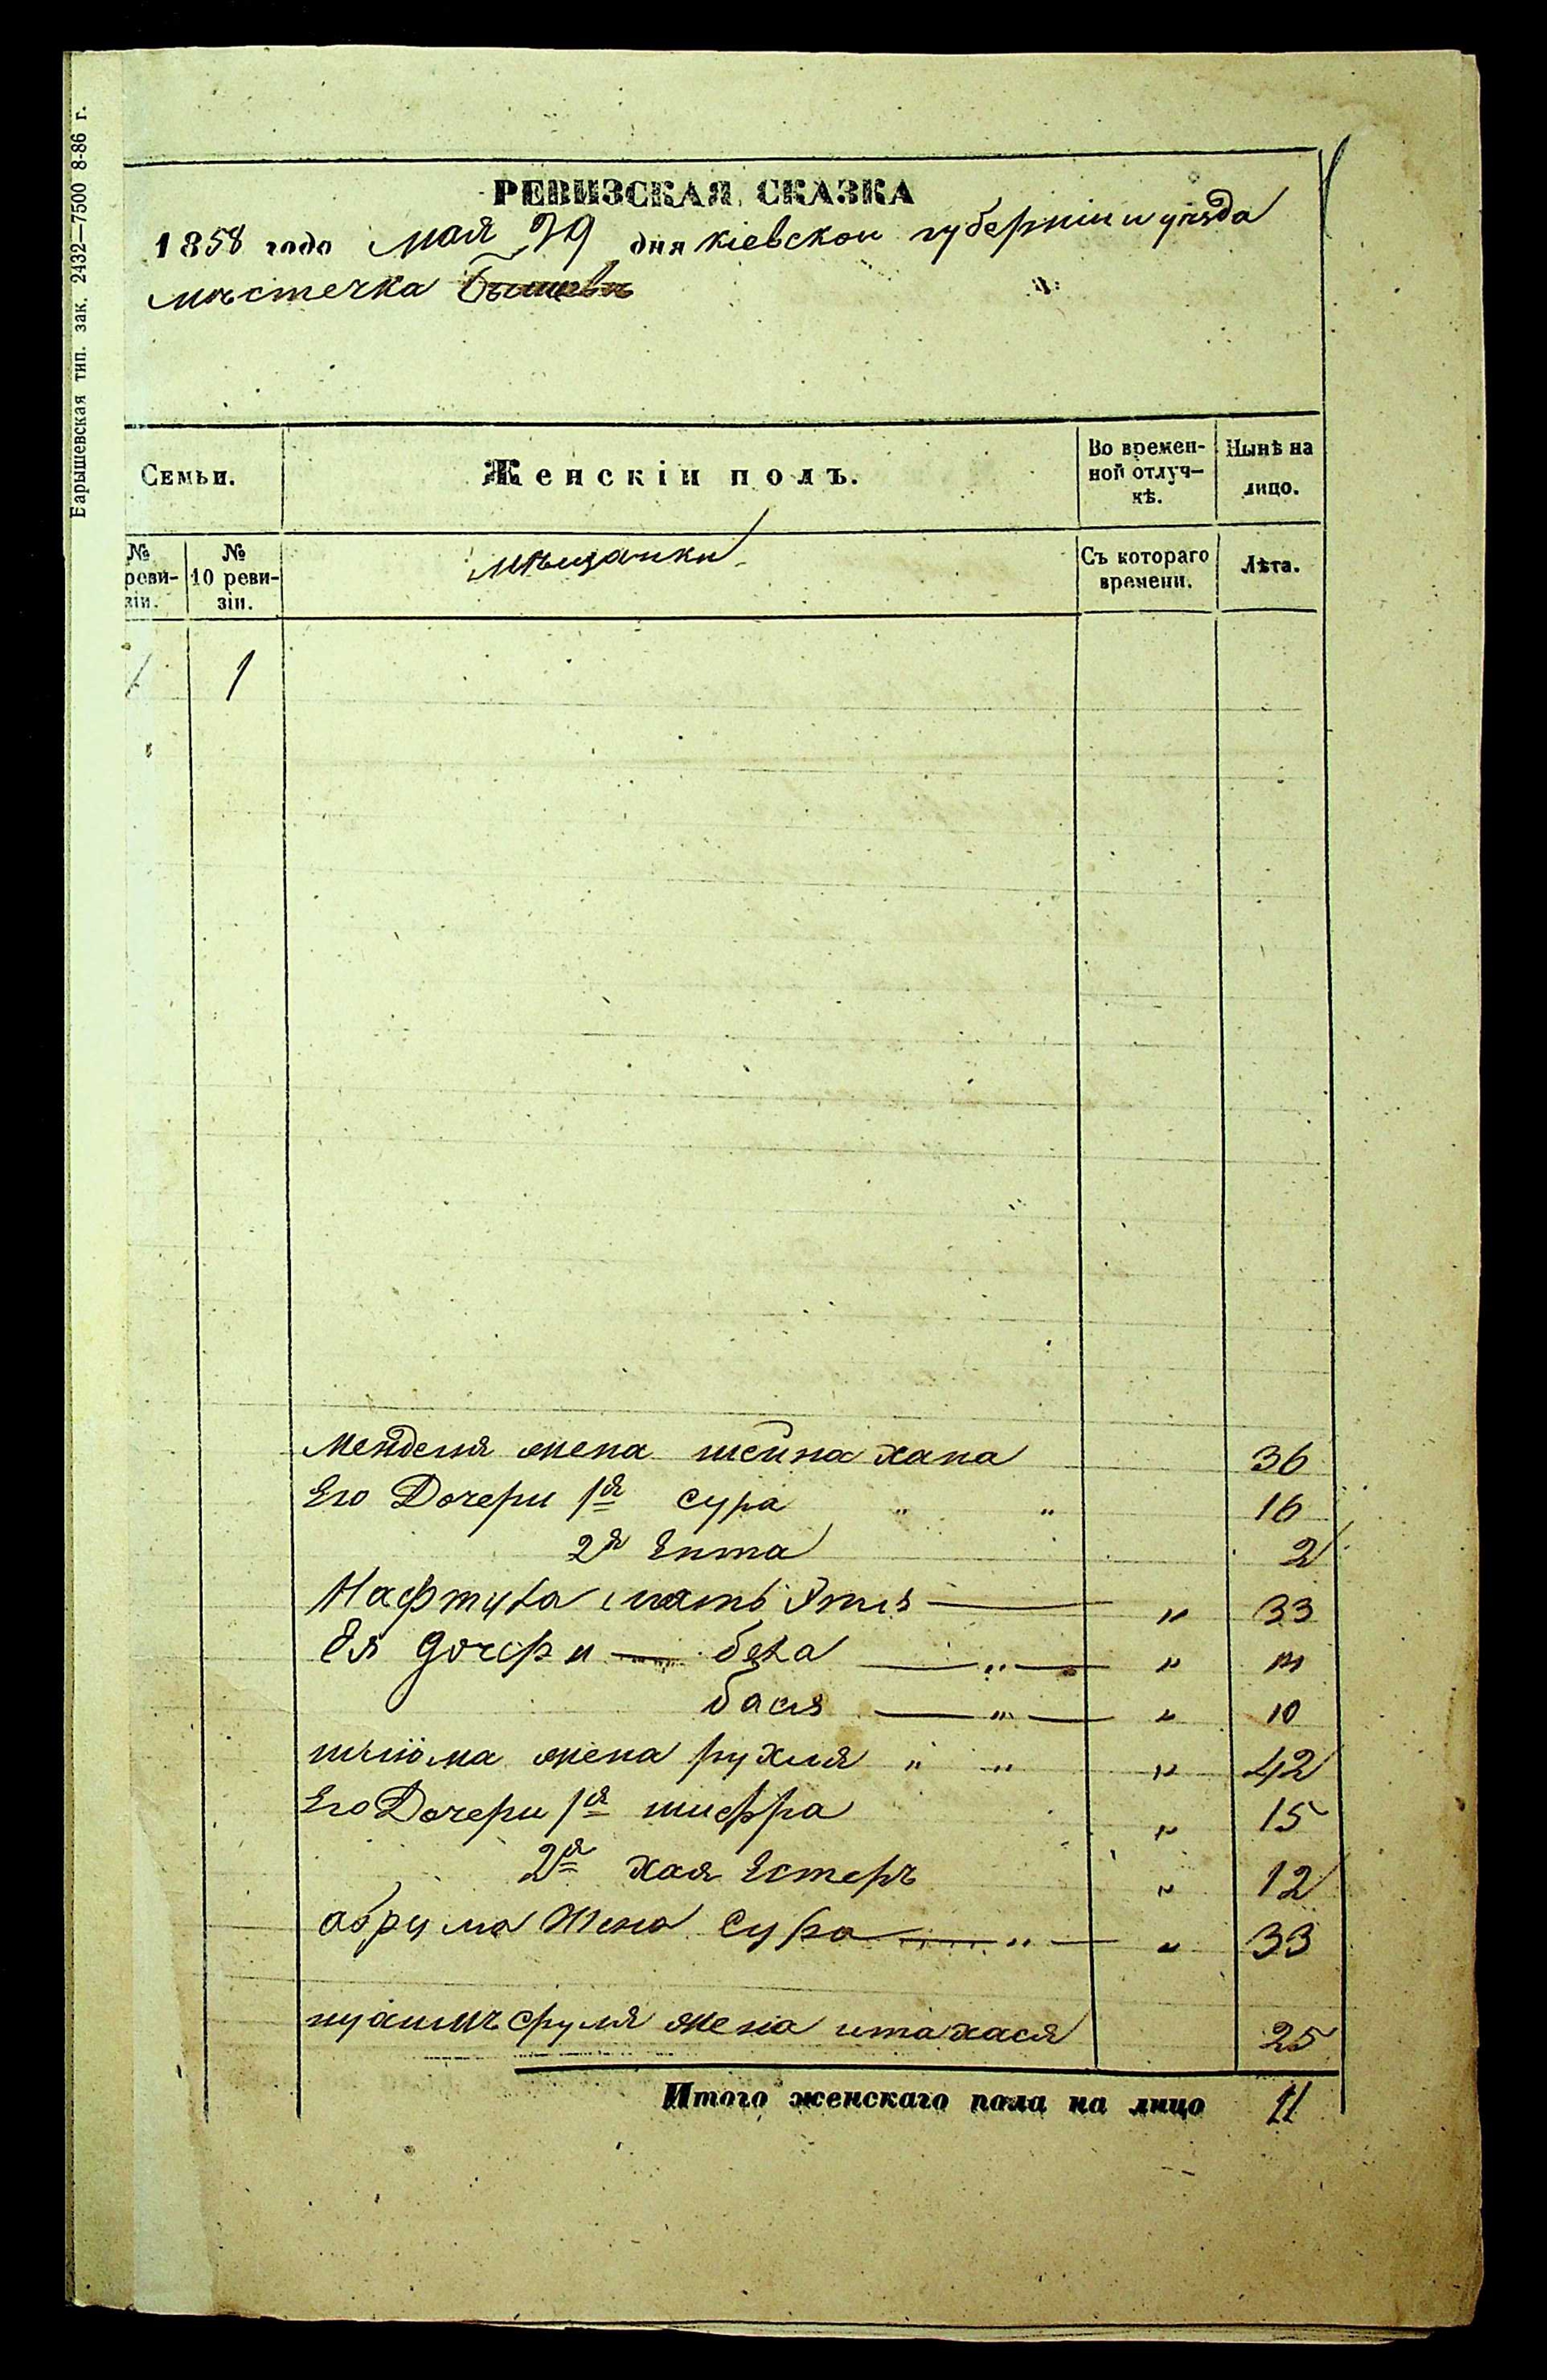 Барышевская тип. зак. 2432—7500 8-86 г.
РЕВИЗСКАЯ СКАЗКА
1858 года мая 29 дня кіевской губерніи и уѣзда
мѣстечка Бышевъ
Семьи.
Женскій полъ.
Во времен-
ной отлуч-
кѣ.
Нынѣ на
лицо.
№
реви-
зіи.
№
10 реви-
зіи.
мѣщанки
Съ котораго
времени.
Лѣта.
1 1
Менделя жена шейна хана 36
Его Дочери 1я сура " " 16
2я Ента 2
Нафтула мать — " 33
Ея дочери — бейла — " — "
бася — " — " 10
шлiома жена рухля " " " 42
Его Дочери 1я шифра " 15
2я хая Естеръ " 12
абрума Жена Сура — " — " 33
сруля жена итахася 25
Итого женскаго пола на лицо 11